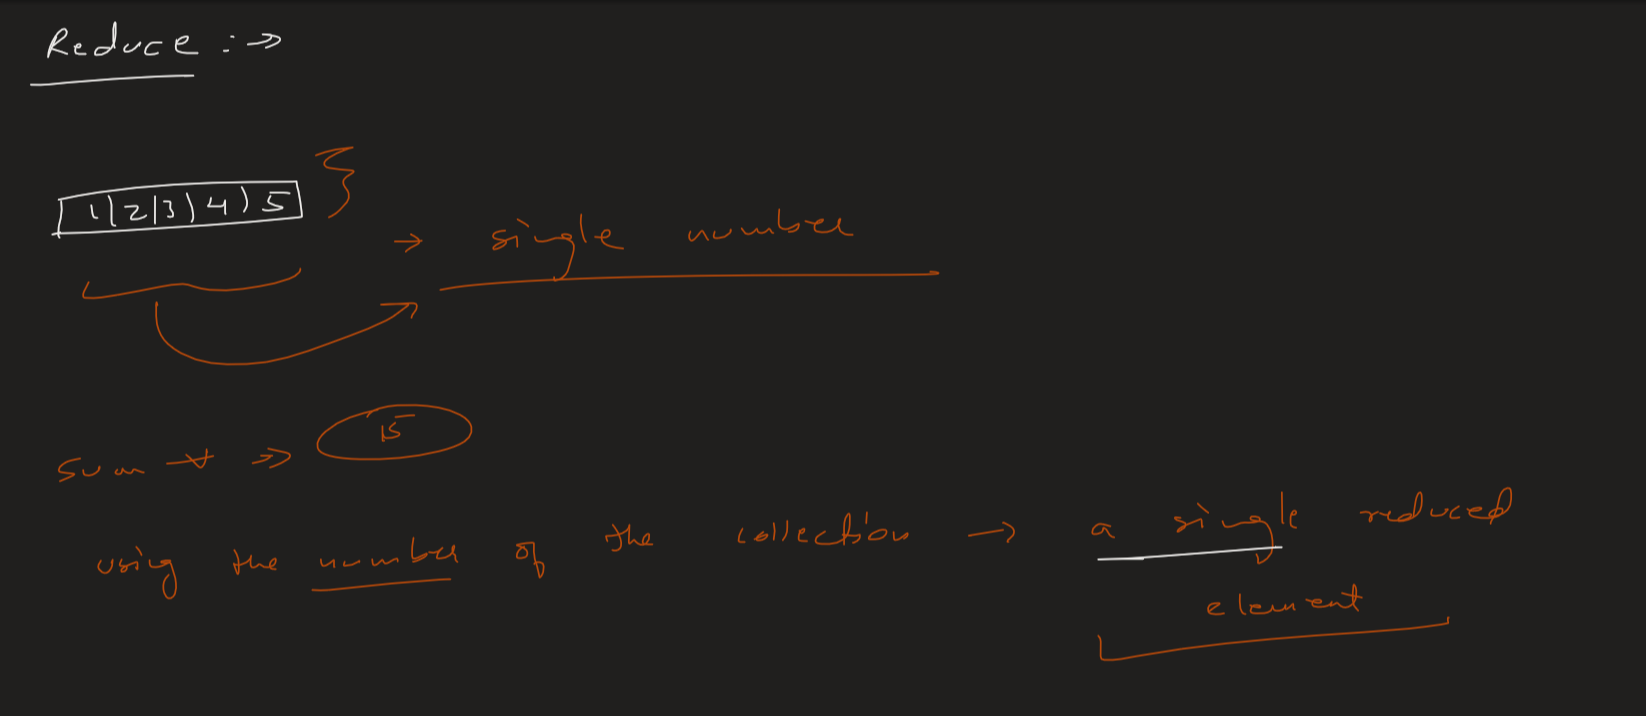 Reduce :->
1|2|3|4|5
-> single number
15
sum -> =>
using the number of the collection -> a single reduced
element